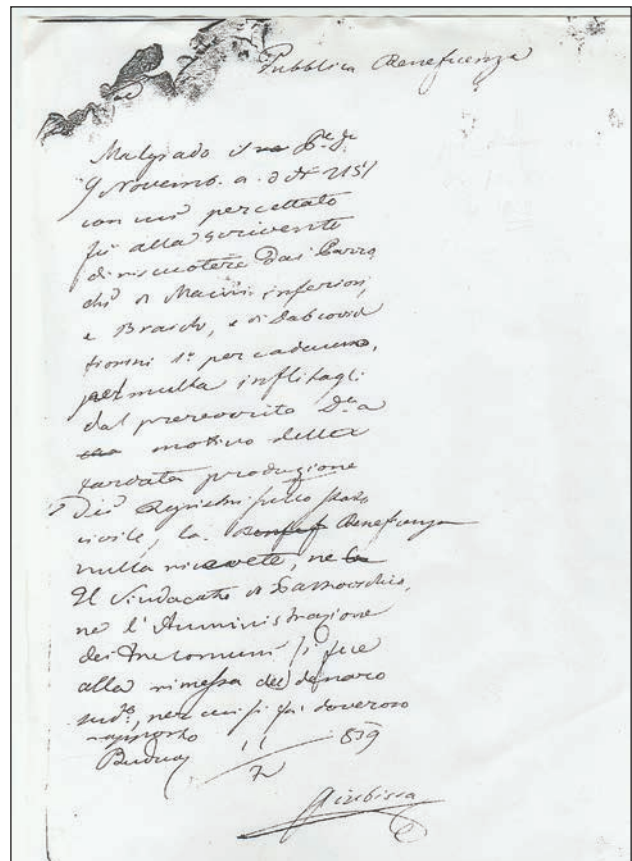 Pubblica Beneficenza
Malgrado
9 Novemb. a. d. N° 2151
con cui percettato
fù alla scrivente
di riscuotere dai Parro
chi di Maini inferiori,
e Braich, e di Dabcovich
fiorini 1° per cadauno,
per multa inflitagli
dal prereverito D.to a
motivo della
tardata produzione
Registri sullo stato
civile, la Beneficenza
nulla ricevete, ne
Il Sindacato di Pastrovichio,
ne l'Amministrazione
dei Tre comuni si fece
alla rimessa del denaro
sud.o, per cui si fai doveroso
rapporto
Budua 11/7 859